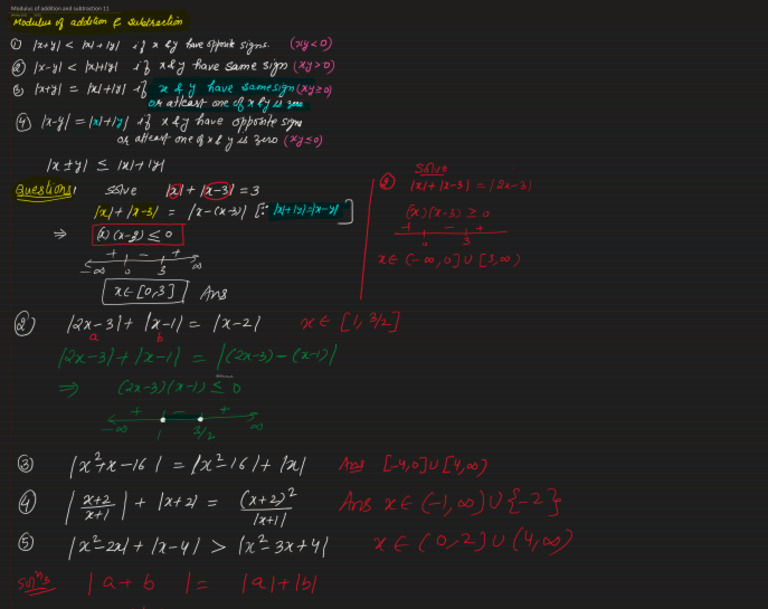 Modulus of addition and subtraction 11
Modulus of addition & subtraction
① |x+y| < |x|+|y| if x & y have opposite signs. (xy<0)
② |x-y| < |x|+|y| if x & y have same sign (xy>0)
③ |x+y| = |x|+|y| if x & y have same sign (xy≥0)
or atleast one of x & y is zero
④ |x-y| = |x|+|y| if x & y have opposite sign
or atleast one of x & y is zero (xy≤0)
|x±y| ≤ |x|+|y|
Questions: solve |x| + |x-3| = 3
|x| + |x-3| = |x-(x-3)| [∵ |x|+|y|=|x-y|]
⇒ (x)(x-3) ≤ 0
+ - +
-∞ 0 3 ∞
x∈[0,3] Ans
Solve
|x|+|x-3| = |2x-3|
(x)(x-3) ≥ 0
+ - +
0 3
x∈(-∞,0]∪[3,∞)
② |2x-3| + |x-1| = |x-2| x∈[1, 3/2]
a b
|2x-3| + |x-1| = |(2x-3)-(x-1)|
⇒ (2x-3)(x-1) ≤ 0
+ - +
-∞ 1 3/2 ∞
③ |x²+x-16| = |x²-16|+|x| Ans [-4,0]∪[4,∞)
④ |x+2/x+1| + |x+2| = (x+2)²/|x+1| Ans x∈(-1,∞)∪{-2}
⑤ |x²-2x|+|x-4| > |x²-3x+4| x∈(0,2]∪(4,∞)
Solⁿ3 |a+b| = |a|+|b|